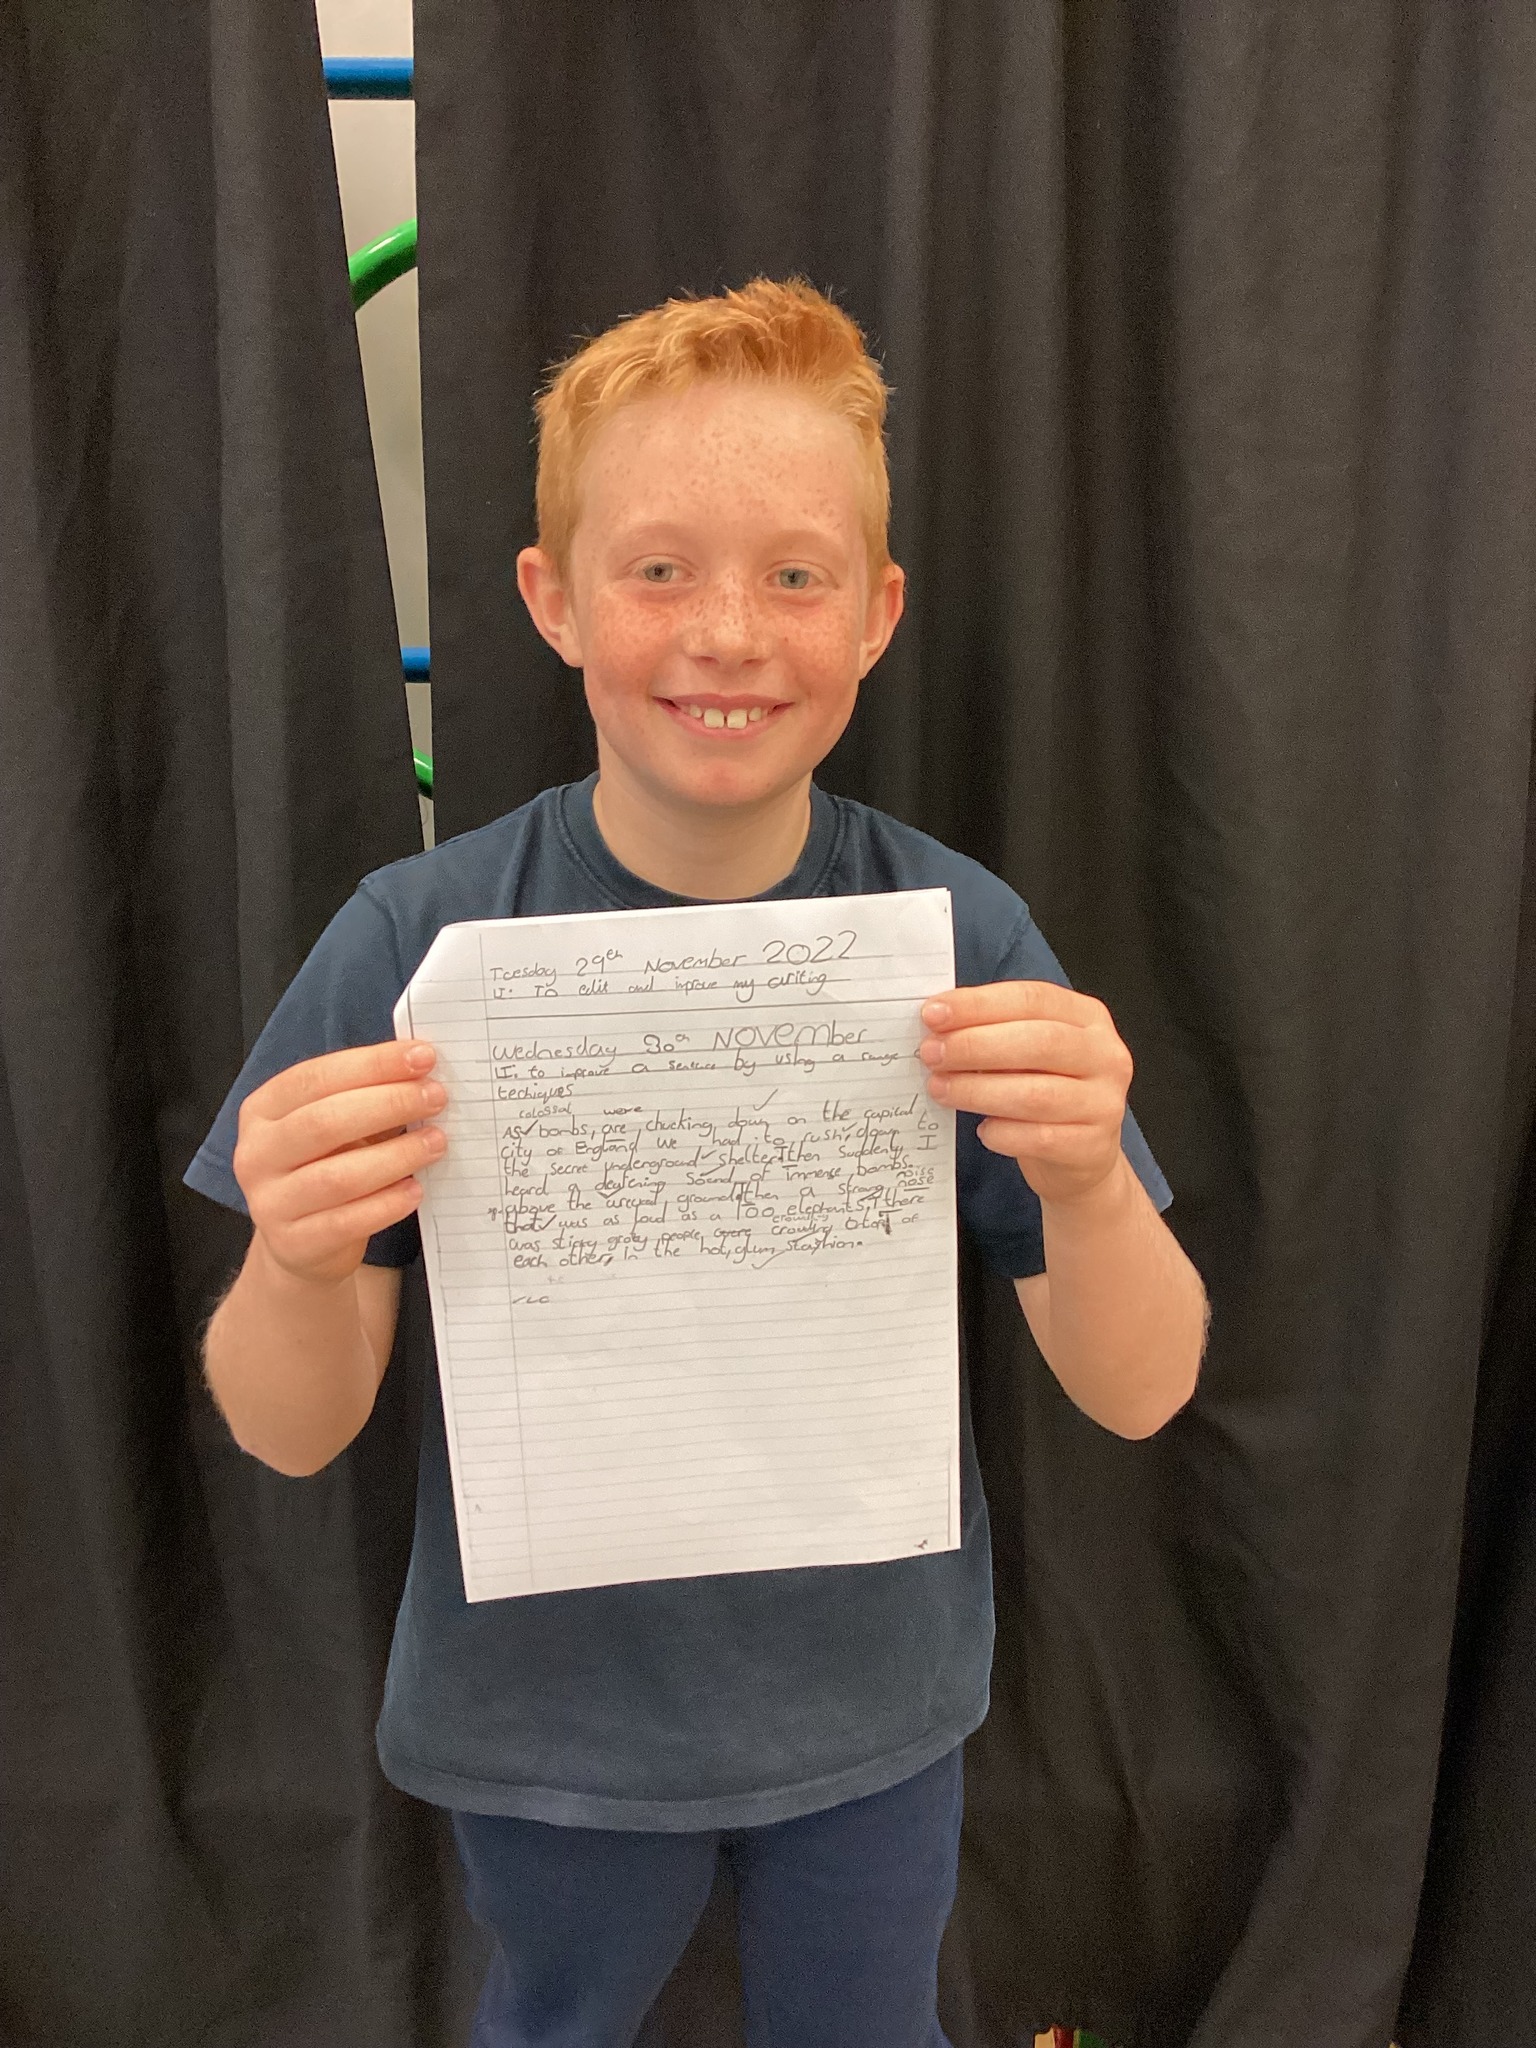 Tuesday 29th November 2022
LI: To edit and improve my writing
Wednesday 30th November
LI: to improve a sentence by using a range
techiques
colossal were
As bombs, are chucking down on the capital
city of England we had to rush down to
the secret underground shelter. Then suddenly I
heard a deafening sound of immense bombs.
noise
above the ground, Then a strong nose
that was as loud as a 100 elephants, There
crowling
was sticky people were crowling of
each other, In the hot, glum stashion.